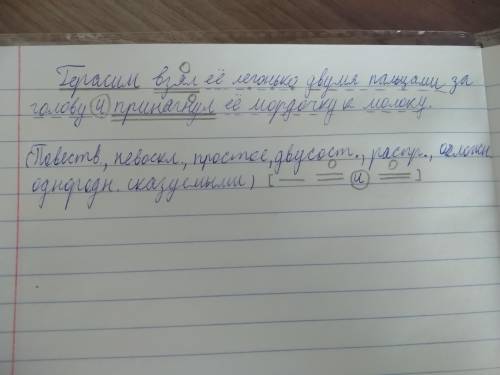 Герасим взял её легонько двумя пальцами за
голову и принагнул её мордочку к молоку.
(Повеств., невоскл., простое, двусост., распр., осложн.
однородн. сказуемыми) [— = и =]